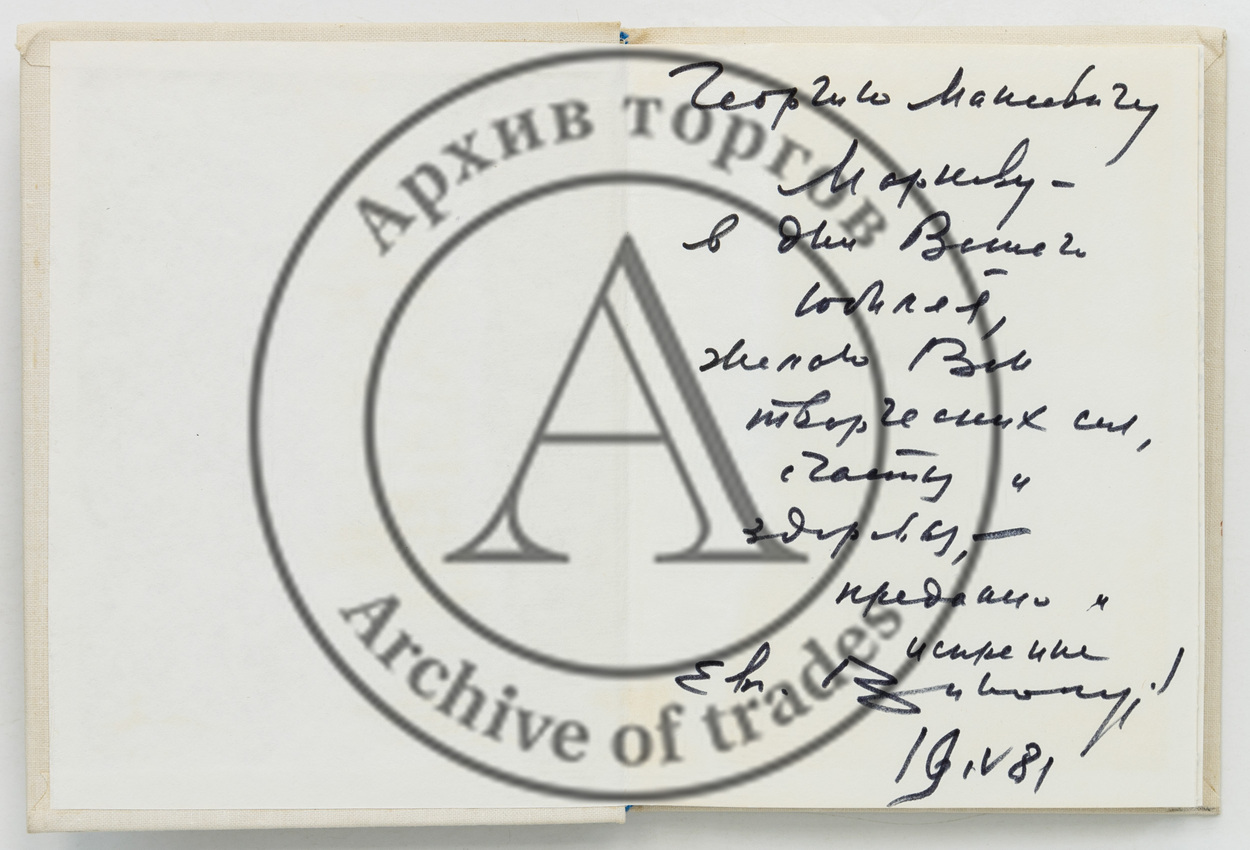 Архив торгов
Archive of trades
Георгию Макеевичу
Маркову –
в дни Вашего
юбилея,
желаю Вам
творческих сил,
счастья и
здоровья, –
преданно и
искренне
Евг.
19.IV 81